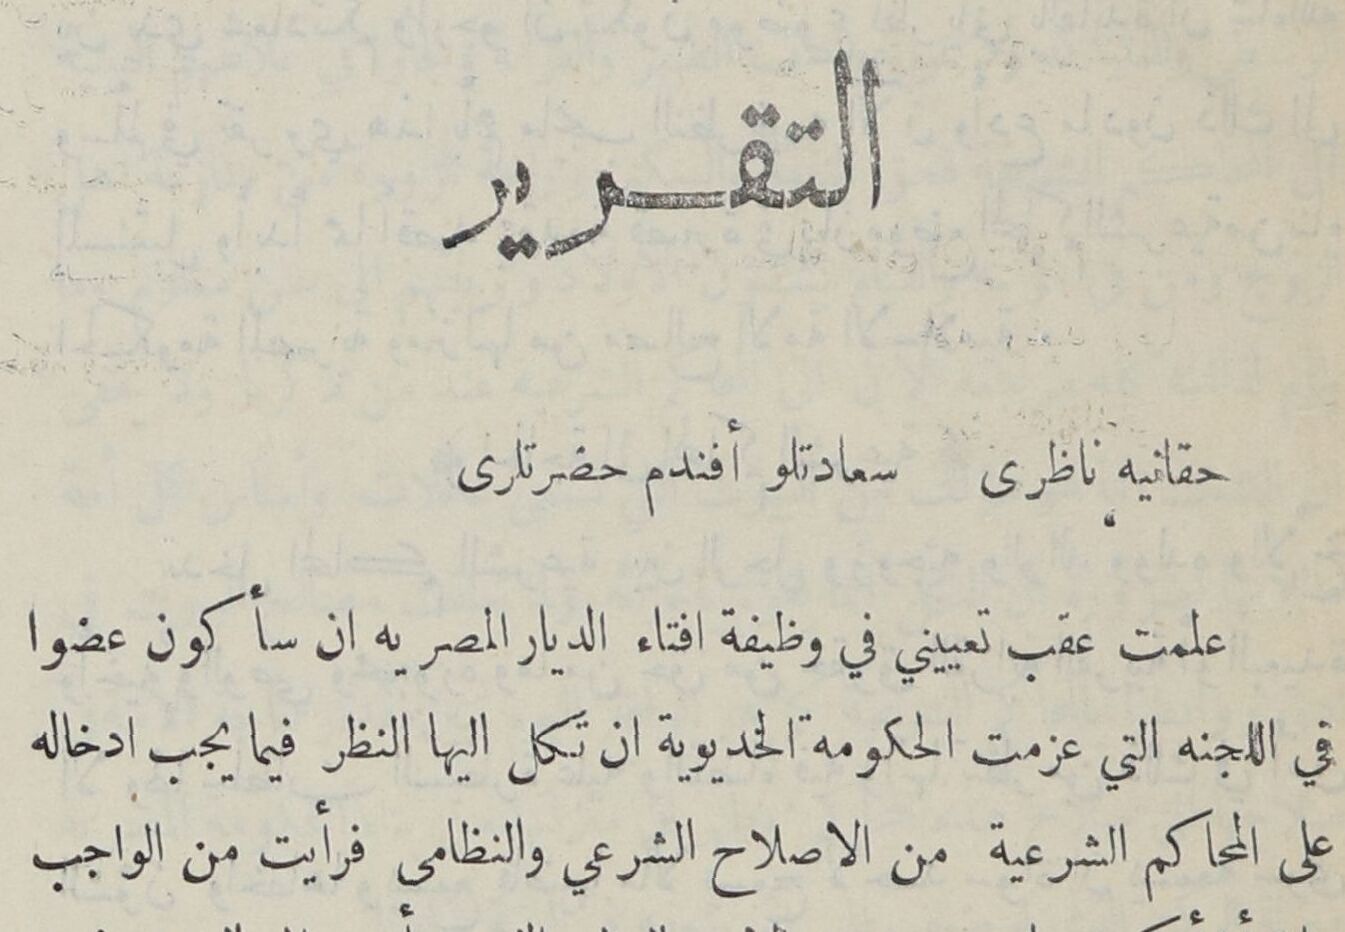 التقرير
حقانيه ناظرى سعادتلو أفندم حضرتلرى
علمت عقب تعييني في وظيفة افتاء الديار المصريه ان سأكون عضوا
في اللجنه التي عزمت الحكومة الخديوية ان تكل اليها النظر فيما يجب ادخاله
على المحاكم الشرعية من الاصلاح الشرعي والنظامى فرأيت من الواجب